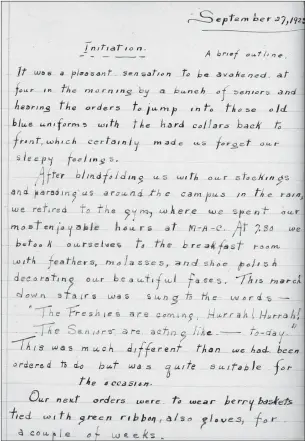 September 27, 192
Initiation.
A brief outline.
It was a pleasant sensation to be awakened at
four in the morning by a bunch of seniors and
hearing the orders to jump into those old
blue uniforms with the hard collars back to
front, which certainly made us forget our
sleepy feelings.
After blindfolding us with our stockings
and parading us around the campus in the rain,
we retired to the gym, where we spent our
most enjoyable hours at M-A-C. At 7.30 we
betook ourselves to the breakfast room
with feathers, molasses, and shoe polish
decorating our beautiful faces. This march
down stairs was sung to the words —
"The Freshies are coming, Hurrah! Hurrah!
The Seniors are acting like — to-day."
This was much different than we had been
ordered to do but was quite suitable for
the occasion.
Our next orders were to wear berry baskets
tied with green ribbon, also gloves, for
a couple of weeks.